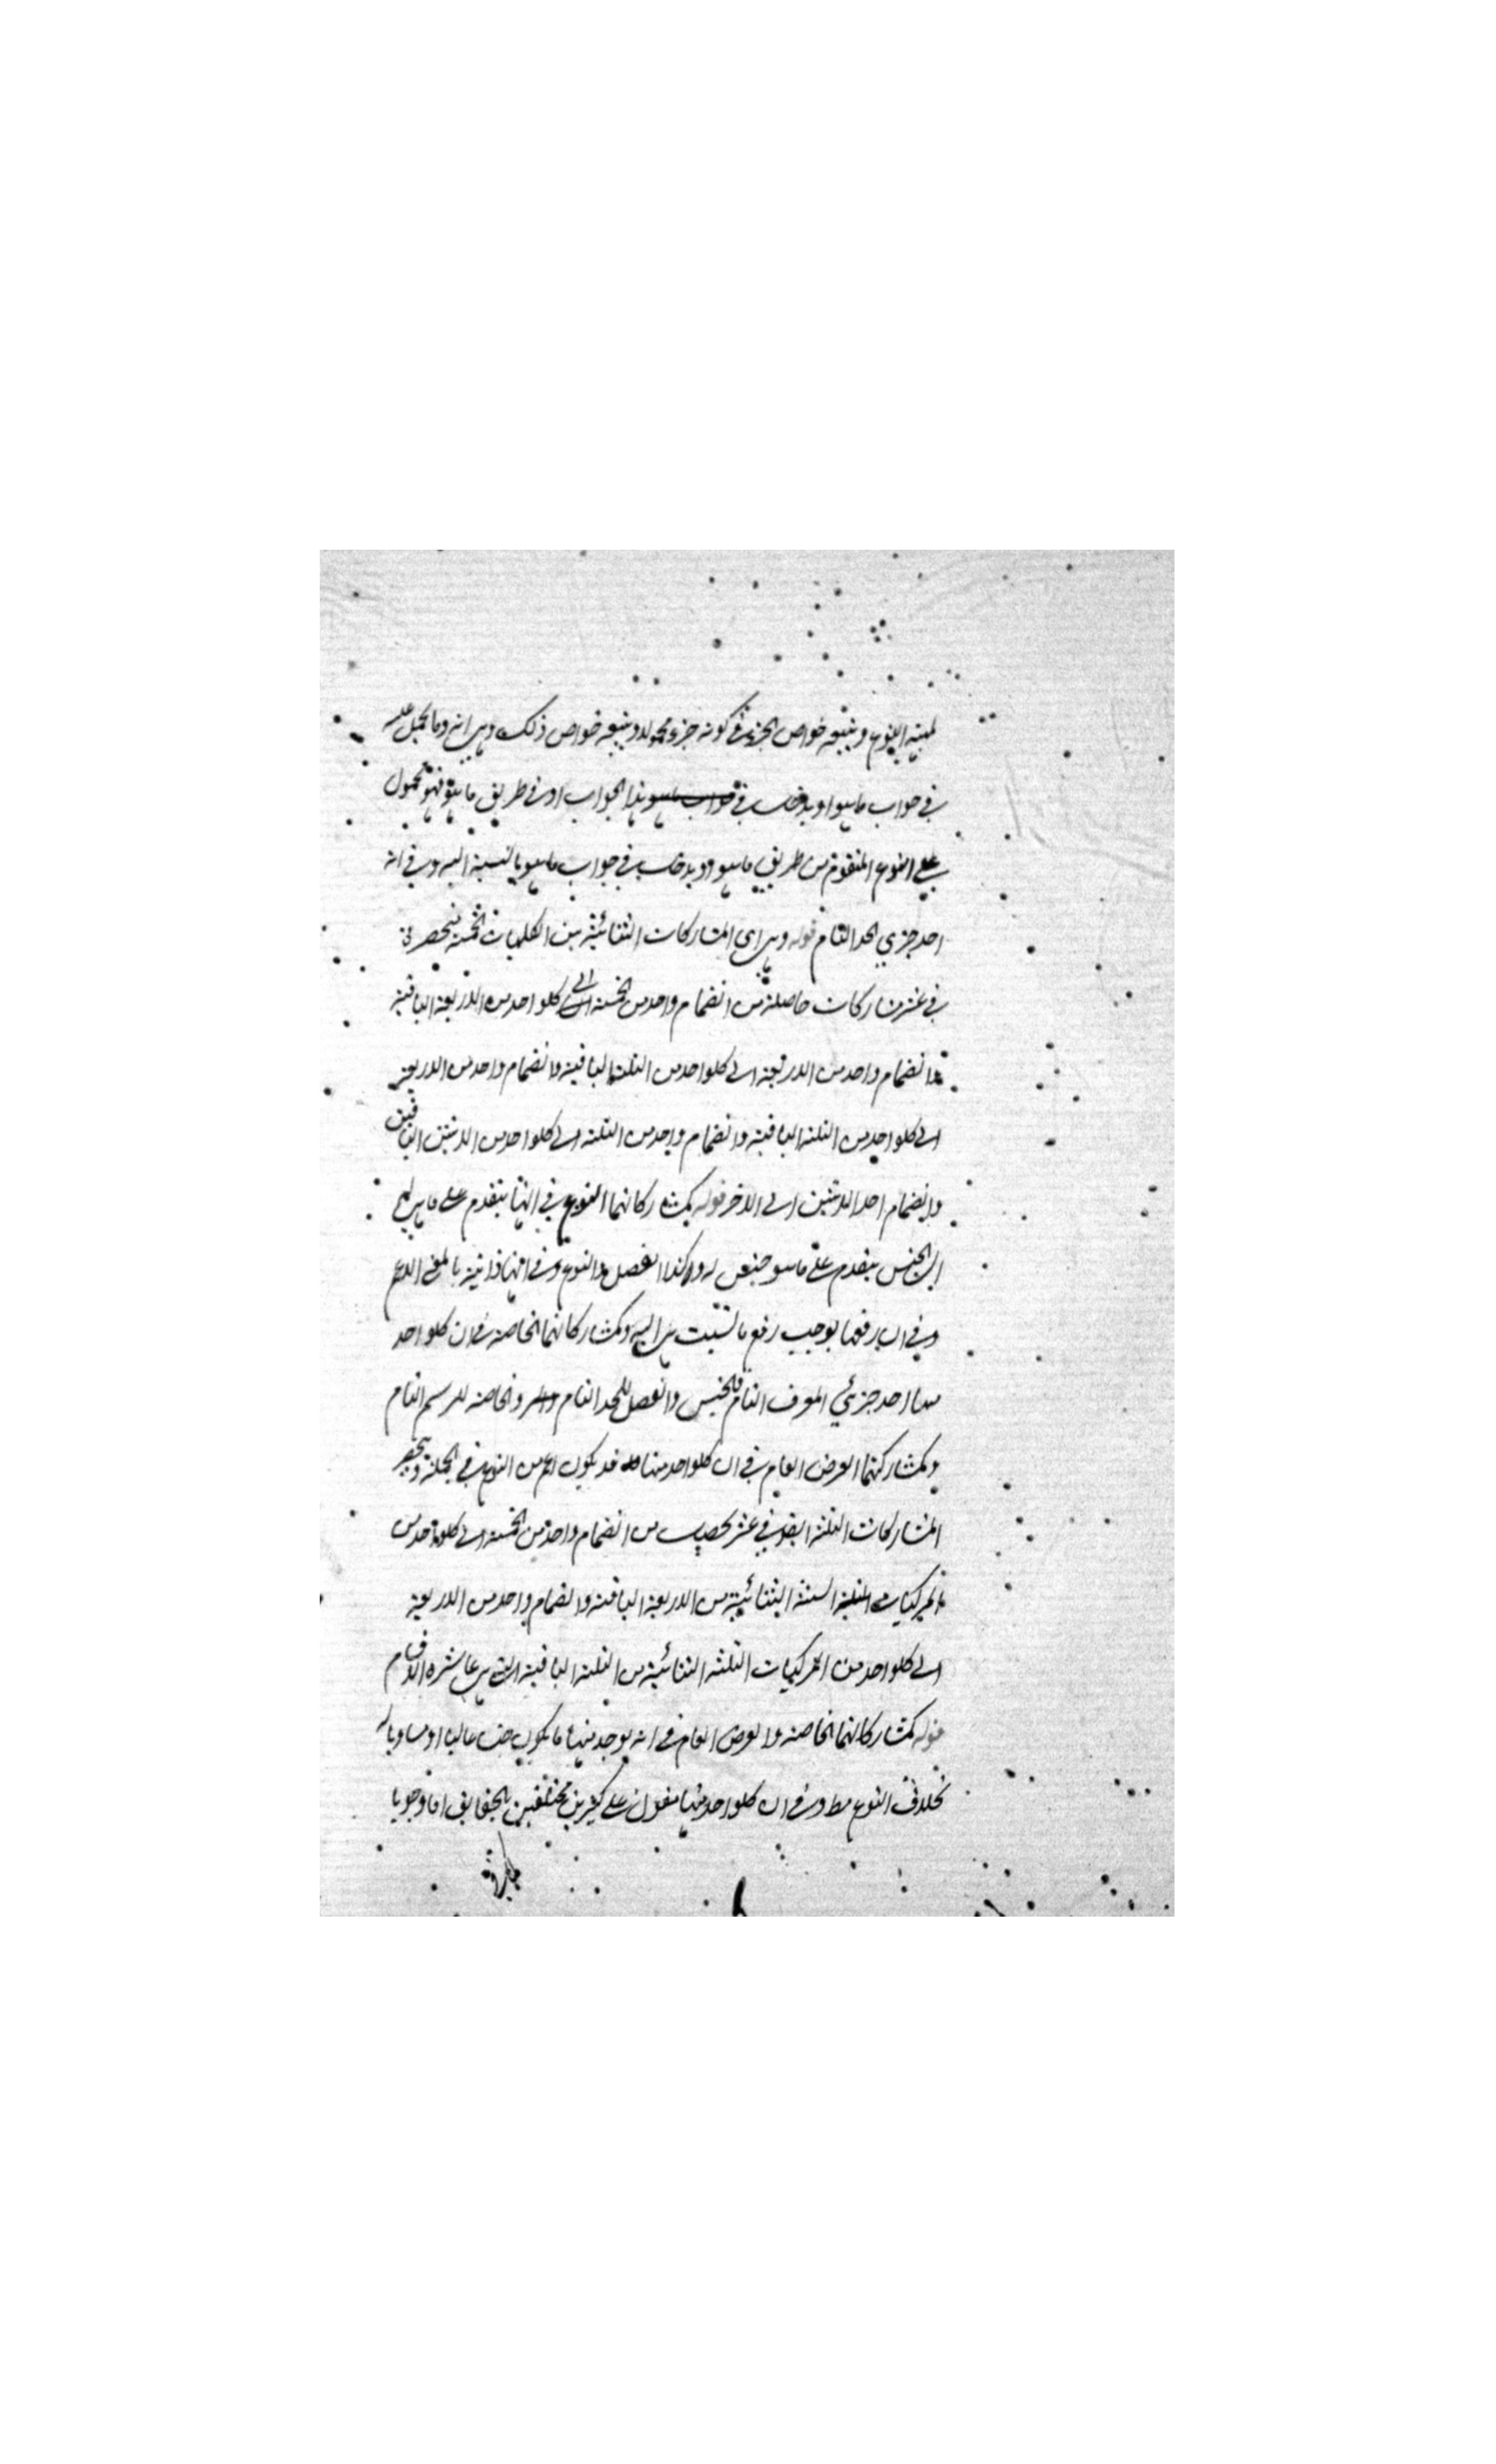 لمهية النوع ويتبعه خواص الجزء في كونه جزء محمولا ويتبعه خواص ذلك وهي انه وما يحمل عليه
في جواب ما هو او يدخل في جواب ما هو هذا الجواب او في طريق ما هو فهو محمول
على النوع المتقوم من طريق ما هو او يدخل في جواب ما هو بالنسبة اليه وفي انه
احد جزئي الحد التام قوله وهي اي المشاركات الثنائية بين الكليات الخمسة تنحصر في
في عشر مشاركات حاصلة من انضمام واحد من الخمسة الى كل واحد من الاربعة الباقية
وانضمام واحد من الاربعة الى كل واحد من الثلثة الباقية وانضمام واحد من الاربعة
الى كل واحد من الثلثة الباقية وانضمام واحد من الثلثة الى كل واحد من الاثنين الباقيين
وانضمام احد الاثنين الى الاخر قوله كمشاركاتهما النوع في انها يتقدم على ما هي له
اي الجنس يتقدم على ما هو جنس له وهكذا الفصل والنوع وفي انها ذاتية بالمعنى الاعم
وفي ان رفعها يوجب رفع ما نسبت هي اليه وكمشاركاتهما الخاصة في ان كل واحد
منها احد جزئي المعرف التام فالجنس والفصل للحد التام والخاصة للرسم التام
وكمشاركتهما العرض العام في ان كل واحد منها قد يكون اعم من النوع في الجملة وينحصر
المشاركات الثلثة ايضا في عشر يحصل من انضمام واحد من الخمسة الى كل واحد من
التركيبات الستة الثنائية من الاربعة الباقية وانضمام واحد من الاربعة
الى كل واحد من التركيبات الثلثة الثنائية من الثلثة الباقية التي هي عاشرة الاقسام
قوله كمشاركاتهما الخاصة والعرض العام في انه يوجد منها ما يكون جنسا عاليا او مساويا له
بخلاف النوع مط وفي ان كل واحد منها مقول على كثيرين مختلفين بالحقايق اما وجوبا